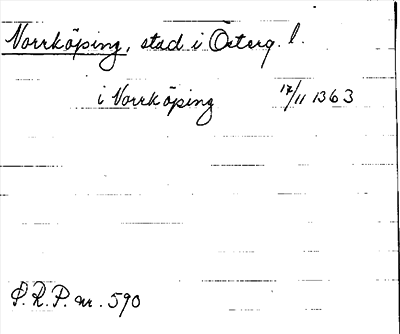 Norrköping, stad i Österg. l.
i Norrköping 17/11 1363
P.R.P. nr. 590